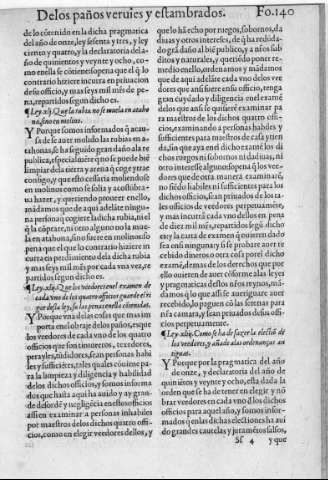 Delos paños veruies y estambrados. Fo.140
de lo cōtenido en la dicha pragmatica
del año de onze, ley sesenta y tres, y ley
ciento y quatro, y la declaratoria del a-
ño de quinientos y veynte y ocho, co-
mo enella se cōtiene so pena que el q̄ lo
contrario hiziere incurra en priuacion
de su officio, y mas seys mil mřs de pe-
na, repartidos segun dicho es.
¶Ley .xij. Que la rubia no se muela en ataho
na, sino en molino.
Y Porque somos informados q̄ acau-
sa de se auer molido las rubias en a-
tahonas, se ha seguido gran daño ala re
publica, especialmēte q̄ no se puede biē
limpiar dela tierra y arena q̄ coge y trae
contigo, y que esto cessaria moliendose
en molinos como se solia y acostūbra-
ua hazer, y queriendo proueer enello,
mādamos que de aqui adelāte ningu-
na persona q̄ cogiere la dicha rubia, ni el
q̄ la cōprare, ni otro alguno no la mue-
la en atahona, sino fuere en molinos, so
pena que el que lo contrario hiziere in
curra en perdimiento dela dicha rubia
y mas seys mil mřs por cada vna vez, re
partidos segun dicho es.
¶Ley .xiij. Que los veedores enel examen de
cada vno de los quatro officios guardē el ri
gor desta ley, so las penas enella cōtenidas.
Y Porque vna de las cosas que mas im
porta enel obraje delos paños, es que
los veedores de cada vno de los quatro
officios que son tintores, texedores,
perayles, tūdidores, sean personas habi
les y sufficiētes, tales quales cōuiene pa-
ra la limpieza y diligencia y habilidad
delos dichos officios, y somos informa
dos que hasta aqui ha auido y ay gran-
de desordē y negligēcia en estos officios
assi en examinar a personas inhabiles
por maestros delos dichos quatro offi-
cios, como en elegir veedores dellos, y
que lo hā echo por ruegos, sobornos, da
diuas y otros interesses, de q̄ ha redūda-
do grā daño al biē publico, y a nřos sub
ditos y naturales, y queriēdo poner re-
medio enello, ordenamos y mādamos
que de aqui adelāte cada vno delos vee
dores que ansi fuere en su officio, tenga
gran cuydado y diligencia enel examē
delos que ansi se quisierē examinar pa
ra maestros de los dichos quatro offi-
cios, examinando a personas habiles y
sufficientes para maestros de casa y tien
da, sin que aya enel dicho examē los di
chos ruegos ni sobornos ni dadiuas, ni
otro interesse alguno: so pena q̄ los vee-
dores que de otra manera examinarē,
no siēdo habiles ni sufficientes para los
dichos officios, sean priuados de los ta-
les officios de veedores perpetuamēte,
y mas incurrā cada vno dellos en pena
de diez mil mřs, repartidos segū dicho
es: y la carta de examen q̄ ouieren dado
sea en si ninguna: y si se prouare auer re
cebido dineros o otra cosa por el dicho
examē, demas de los derechos que por
ello ouieren de auer cōforme alas leyes
y pragmaticas destos nřos reynos, mā-
damos q̄ lo que assi se aueriguare auer
recebido, lo paguen cō las setenas para
nřa camara, y sean priuados de su offi-
cios perpetuamente.
¶Ley .xiiij. Como se ha de hazer la electiō de
los veedores, y añade alas ordenanças an
tiguas.
Y Porque por la pragmatica del año
de onze, y declaratoria del año de
quinientos y veynte y ocho, esta dada la
orden que se ha de tener en elegir y nō
brar veedores en cada vno d̄los dichos
officios para aquel año, y somos infor-
mados q̄ enlas dichas electiones ha aui
do grandes cautelas y tramas falsos,
Sf 4 y que